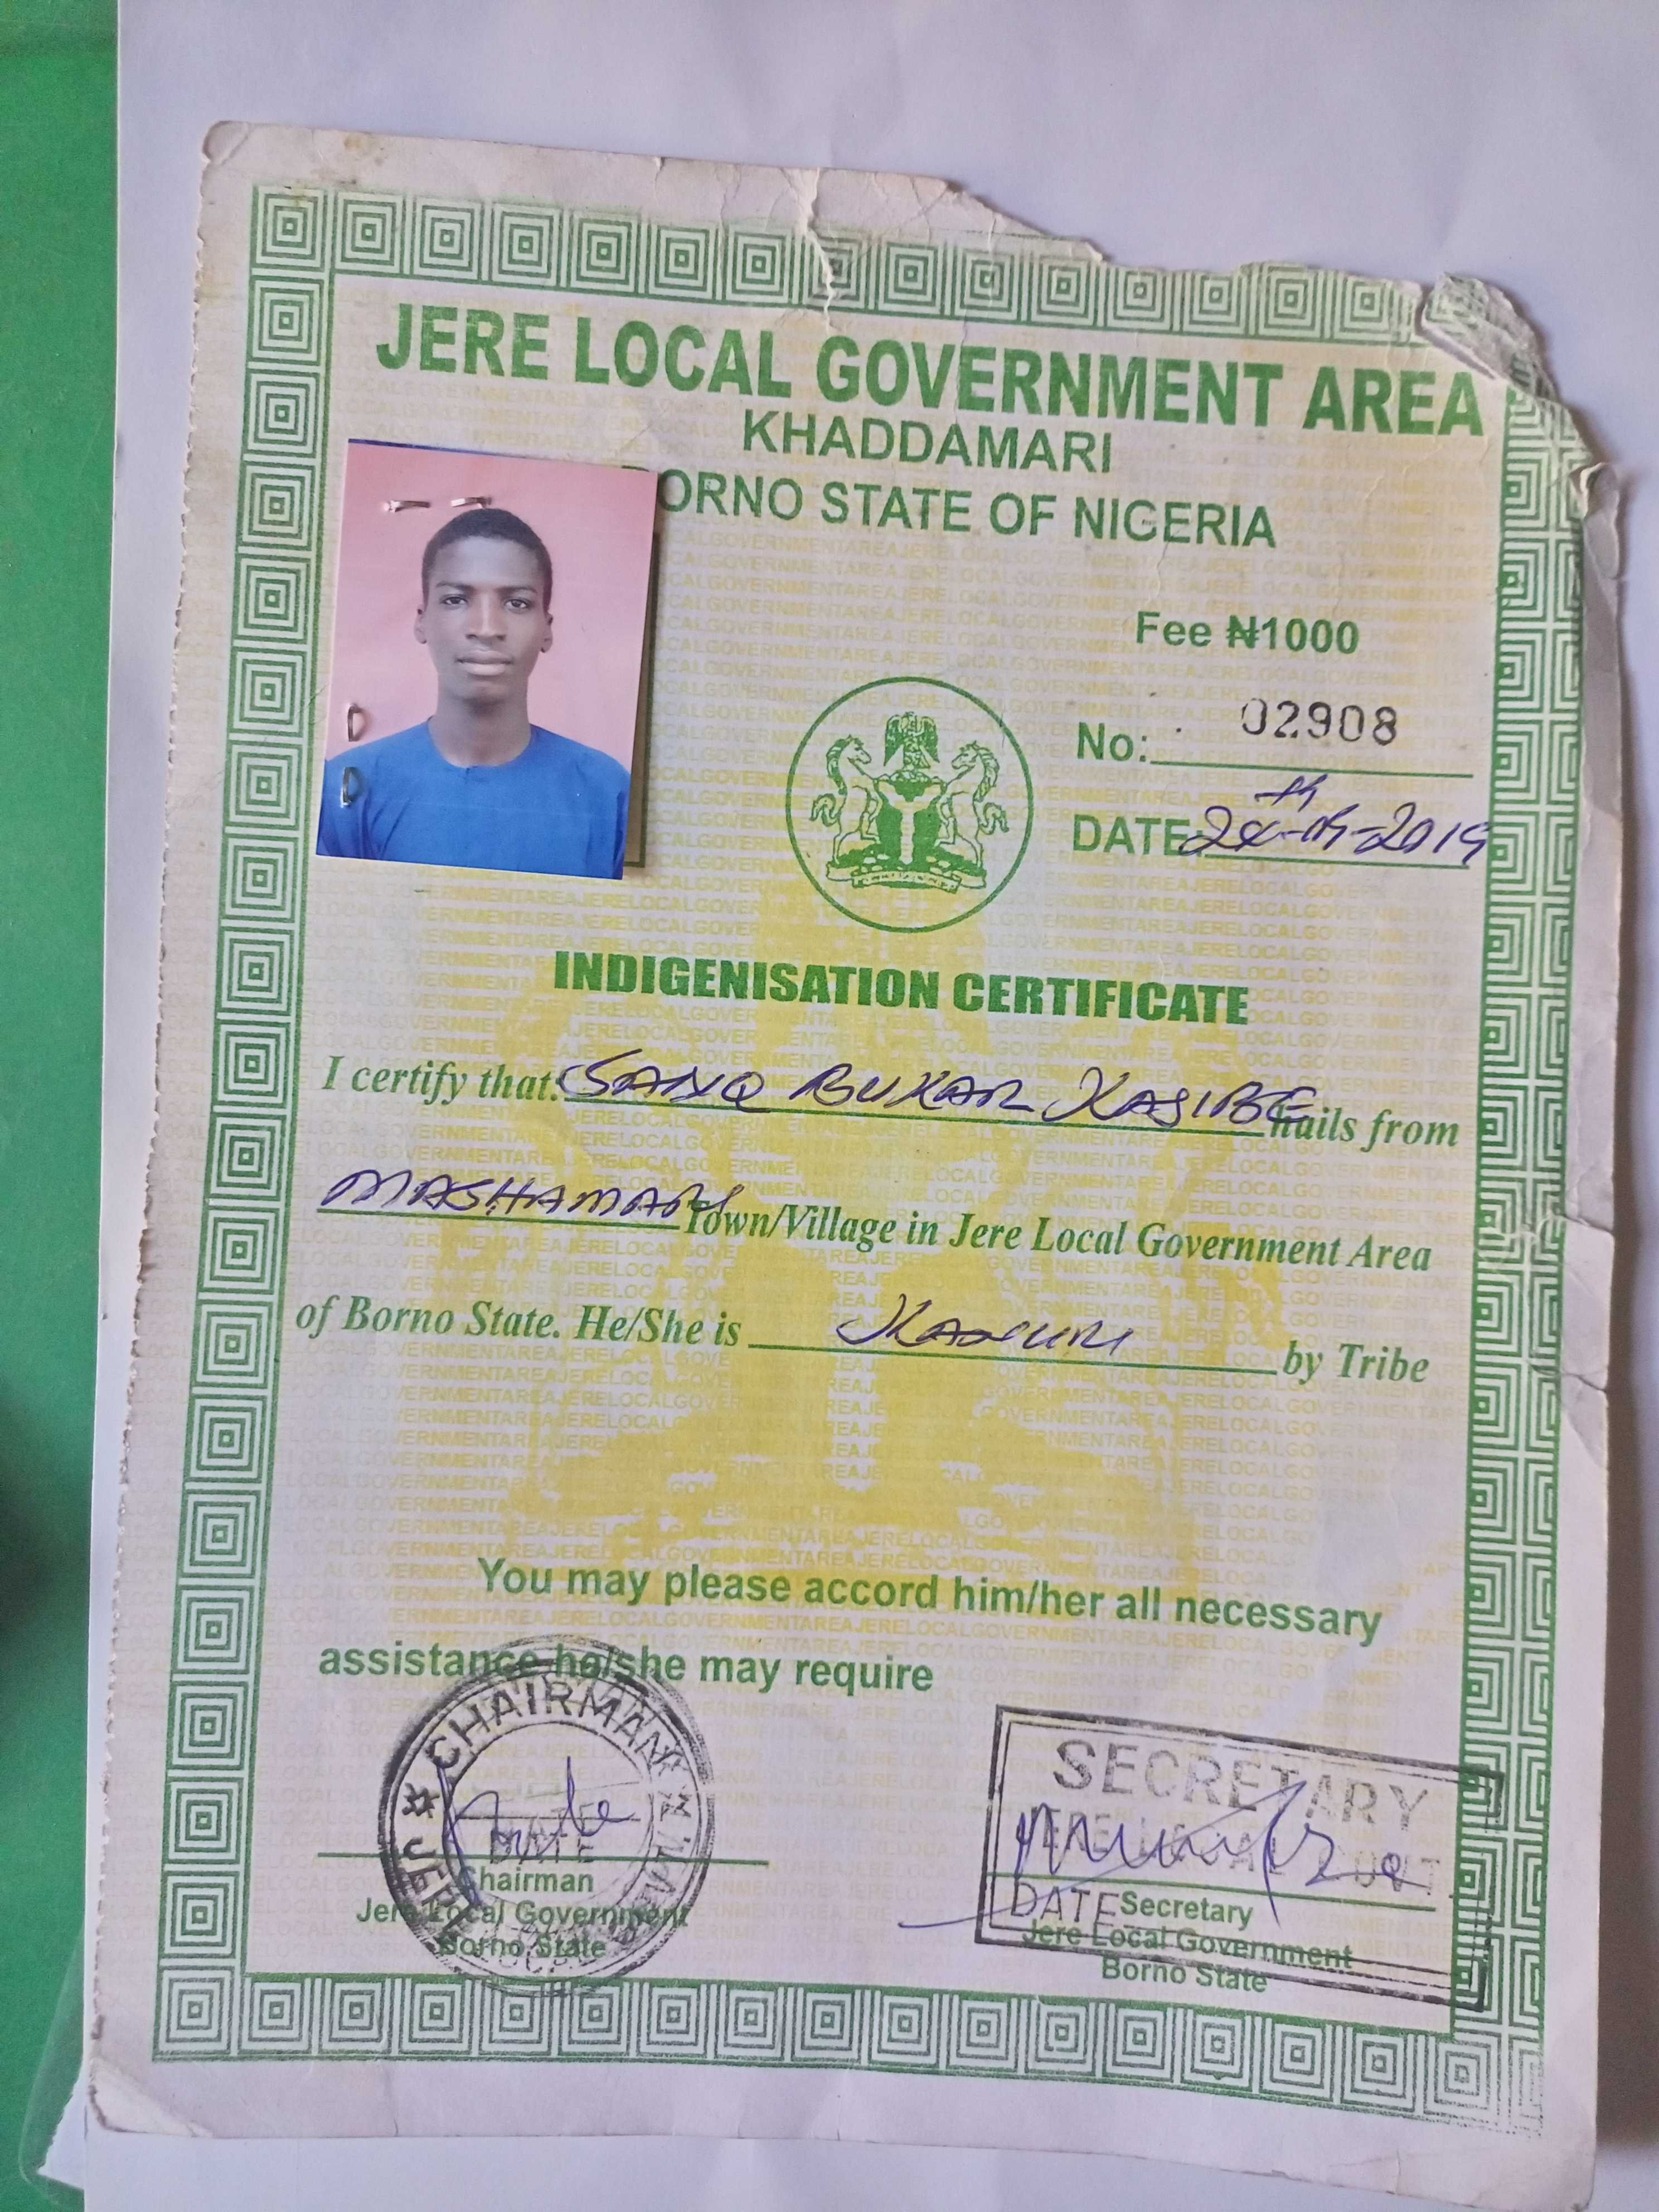 JERE LOCAL GOVERNMENT AREA
KHADDAMARI
BORNO STATE OF NIGERIA
Fee ₦1000
No: 02908
DATE: 2019
INDIGENISATION CERTIFICATE
I certify that: BUKAR hails from
MASHAMARI Town/Village in Jere Local Government Area
of Borno State. He/She is KANURI by Tribe
You may please accord him/her all necessary
assistance he/she may require
CHAIRMAN
DATE
Chairman
Jere Local Government
Borno State
SECRETARY
JERE LOCAL GOVT
DATE
Secretary
Jere Local Government
Borno State